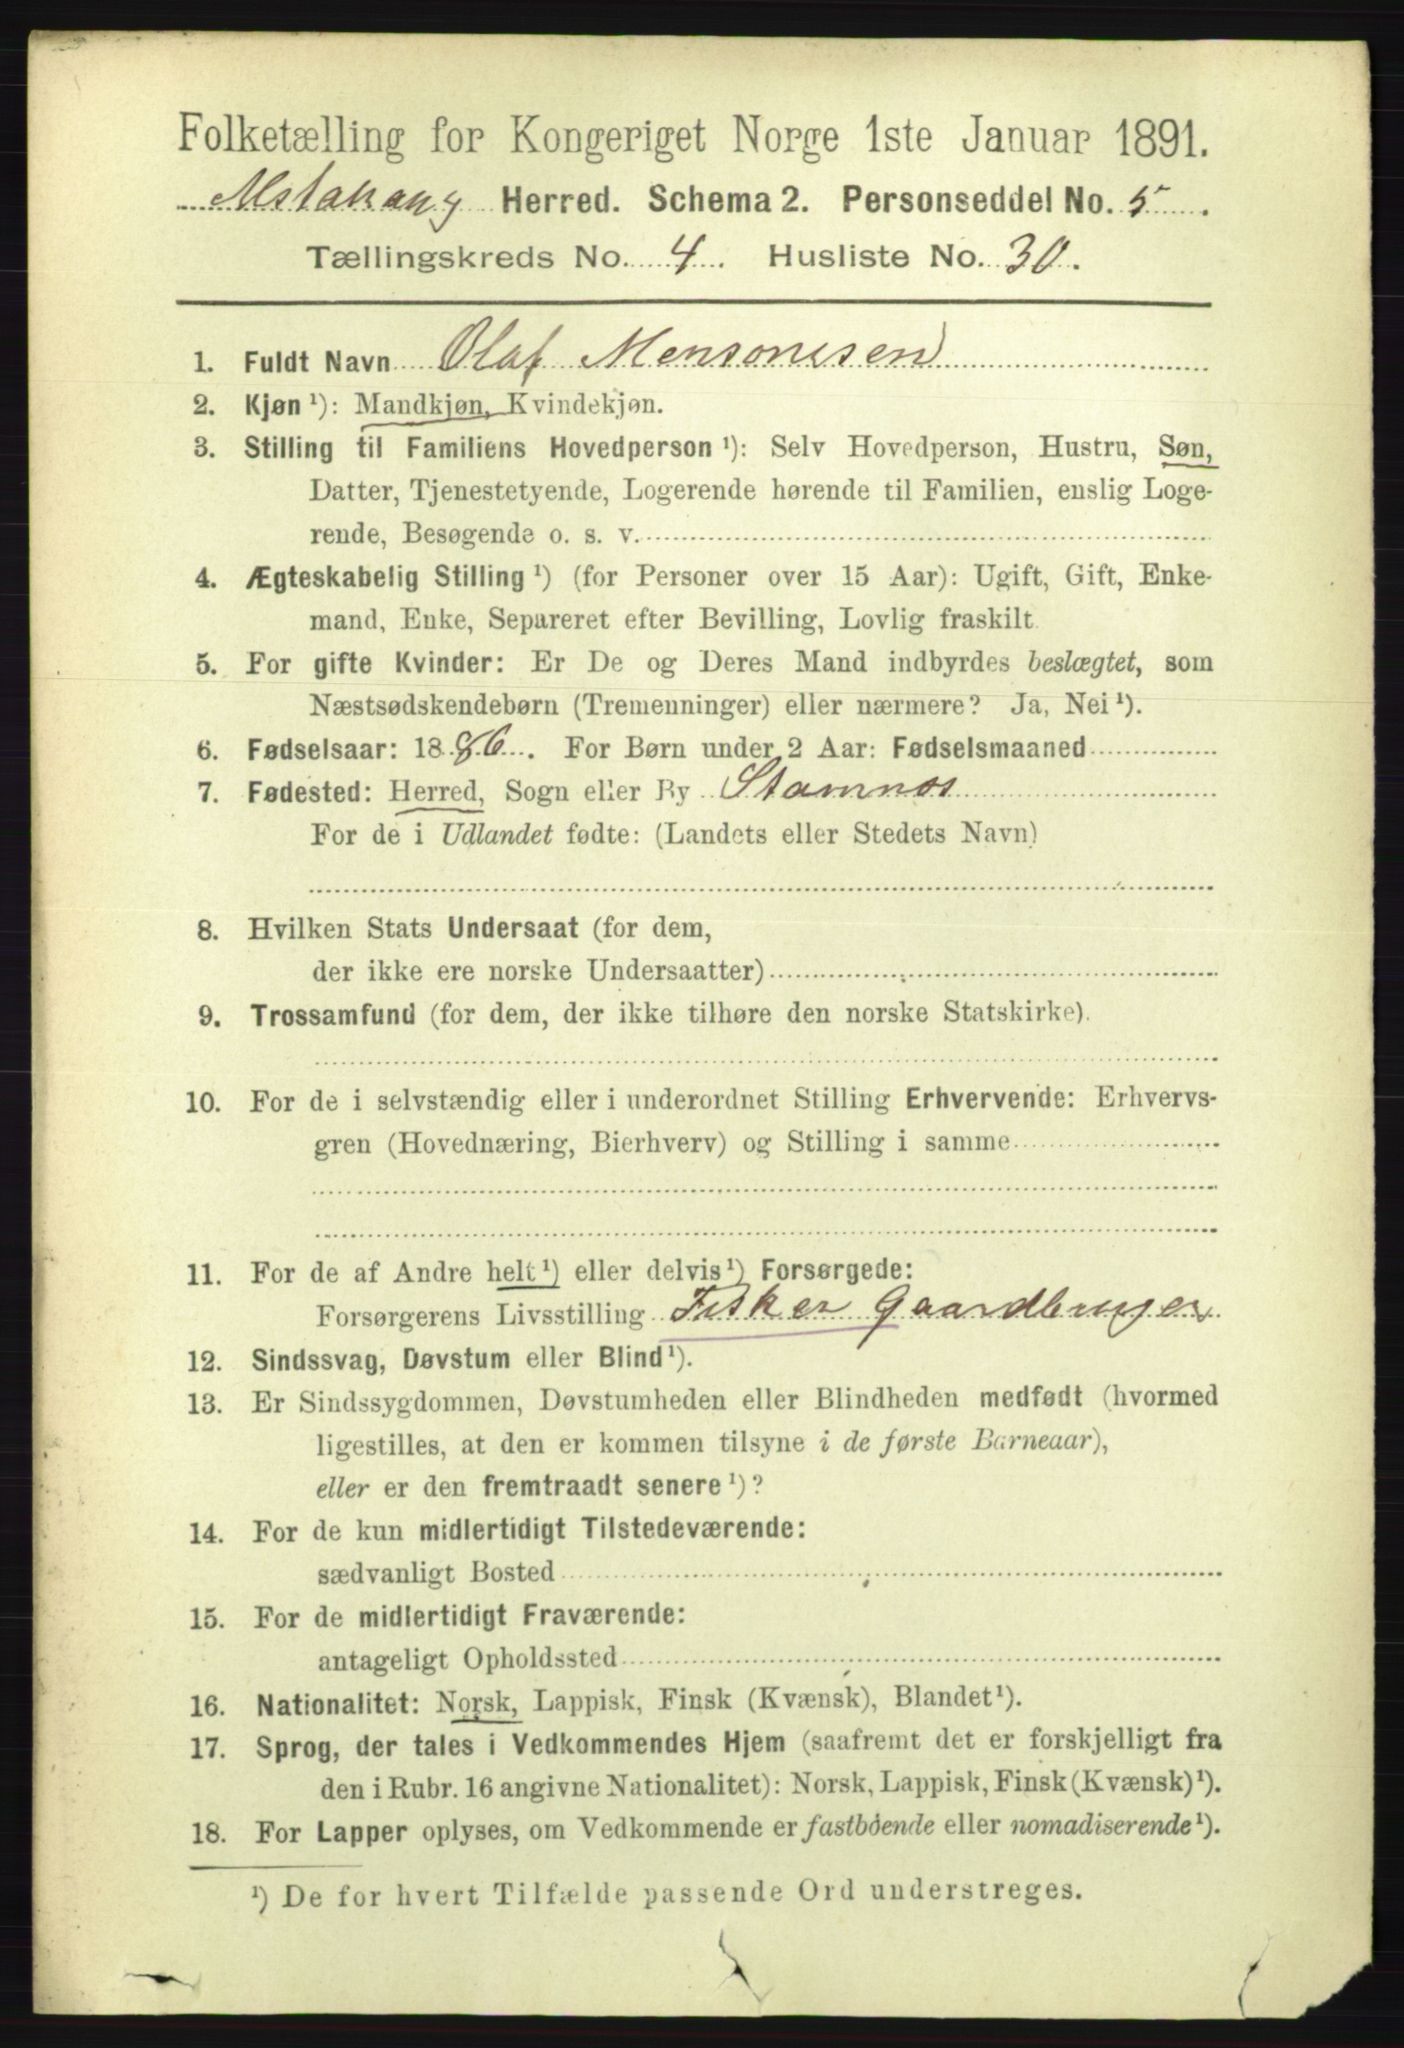 Folketælling for Kongeriget Norge 1ste Januar 1891.
Alstahaug Herred. Schema 2. Personseddel No. 5.
Tællingskreds No. 4. Husliste No. 30.
1. Fuldt Navn Olaf Mensonesen
2. Kjøn ¹): Mandkjøn, Kvindekjøn.
3. Stilling til Familiens Hovedperson ¹): Selv Hovedperson, Hustru, Søn,
Datter, Tjenestetyende, Logerende hørende til Familien, enslig Loge-
rende, Besøgende o. s. v.
4. Ægteskabelig Stilling ¹) (for Personer over 15 Aar): Ugift, Gift, Enke-
mand, Enke, Separeret efter Bevilling, Lovlig fraskilt.
5. For gifte Kvinder: Er De og Deres Mand indbyrdes beslægtet, som
Næstsødskendebørn (Tremenninger) eller nærmere? Ja, Nei ¹).
6. Fødselsaar: 1886. For Børn under 2 Aar: Fødselsmaaned
7. Fødested: Herred, Sogn eller By Stamnes
For de i Udlandet fødte: (Landets eller Stedets Navn)
8. Hvilken Stats Undersaat (for dem,
der ikke ere norske Undersaatter)
9. Trossamfund (for dem, der ikke tilhøre den norske Statskirke).
10. For de i selvstændig eller i underordnet Stilling Erhvervende: Erhvervs-
gren (Hovednæring, Bierhverv) og Stilling i samme
11. For de af Andre helt ¹) eller delvis ¹) Forsørgede:
Forsørgerens Livsstilling Fisker Gaardbruger
12. Sindssvag, Døvstum eller Blind ¹).
13. Er Sindssygdommen, Døvstumheden eller Blindheden medfødt (hvormed
ligestilles, at den er kommen tilsyne i de første Barneaar),
eller er den fremtraadt senere ¹)?
14. For de kun midlertidigt Tilstedeværende:
sædvanligt Bosted
15. For de midlertidigt Fraværende:
antageligt Opholdssted
16. Nationalitet: Norsk, Lappisk, Finsk (Kvænsk), Blandet ¹).
17. Sprog, der tales i Vedkommendes Hjem (saafremt det er forskjelligt fra
den i Rubr. 16 angivne Nationalitet): Norsk, Lappisk, Finsk (Kvænsk) ¹).
18. For Lapper oplyses, om Vedkommende er fastboende eller nomadiserende ¹).
¹) De for hvert Tilfælde passende Ord understreges.